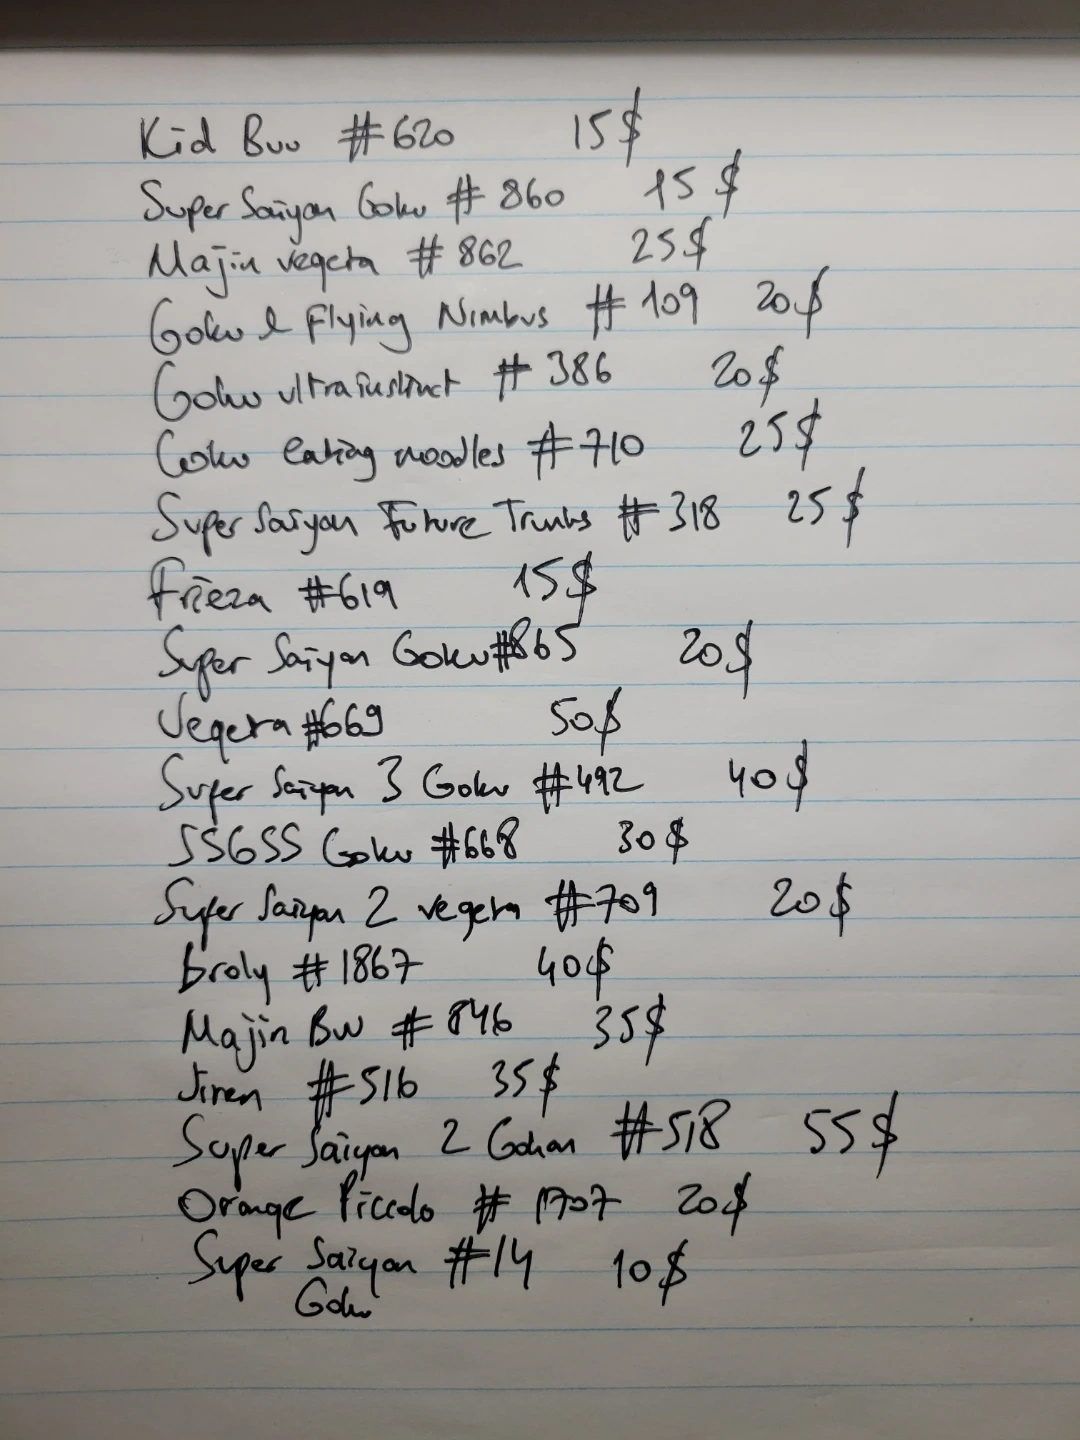 Kid Buu #620 15$
Super Saiyan Goku # 860 15$
Majin vegeta # 862 25$
Goku & Flying Nimbus # 109 20$
Goku ultrainstinct # 386 20$
Goku eating noodles #710 25$
Super Saiyan Future Trunks #318 25$
Frieza #619 15$
Super Saiyan Goku#865 20$
Vegeta #669 50$
Super Saiyan 3 Goku #492 40$
SSGSS Goku #668 30$
Super Saiyan 2 vegeta #709 20$
broly #1867 40$
Majin Buu # 846 35$
Jiren #516 35$
Super Saiyan 2 Gohan #518 55$
Orange Piccolo # 1707 20$
Super Saiyan #14 10$
Goku